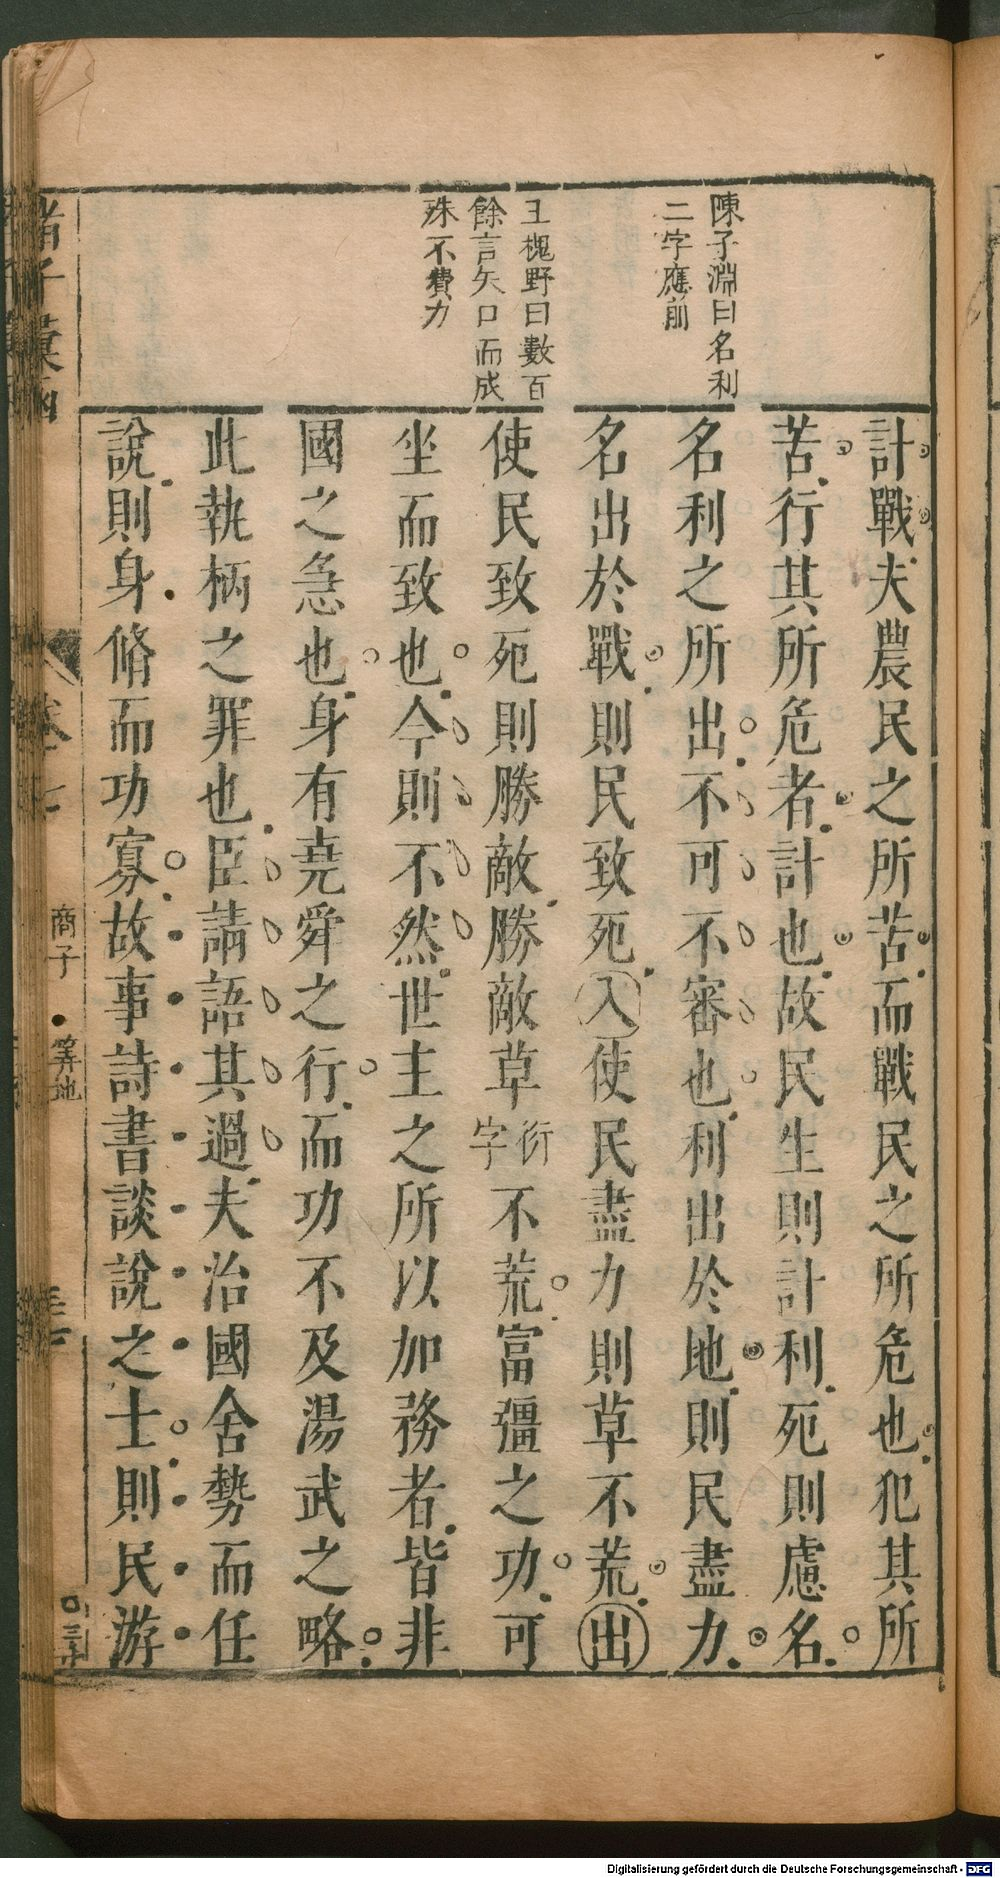 陳子淵曰名利
二字應前
王槐野曰數百
餘言矢口而成
殊不費力
計戰夫農民之所苦而戰民之所危也犯其所
苦行其所危者計也故民生則計利死則慮名
名利之所出不可不審也利出於地則民盡力
名出於戰則民致死入使民盡力則草不荒出
使民致死則勝敵勝敵草衍字不荒富彊之功可
坐而致也今則不然世主之所以加務者皆非
國之急也身有堯舜之行而功不及湯武之略
此執柄之罪也臣請語其過夫治國舍勢而任
說則身脩而功寡故事詩書談說之士則民游
諸子彙函
卷七
商子
算地
Digitalisierung gefördert durch die Deutsche Forschungsgemeinschaft - DFG